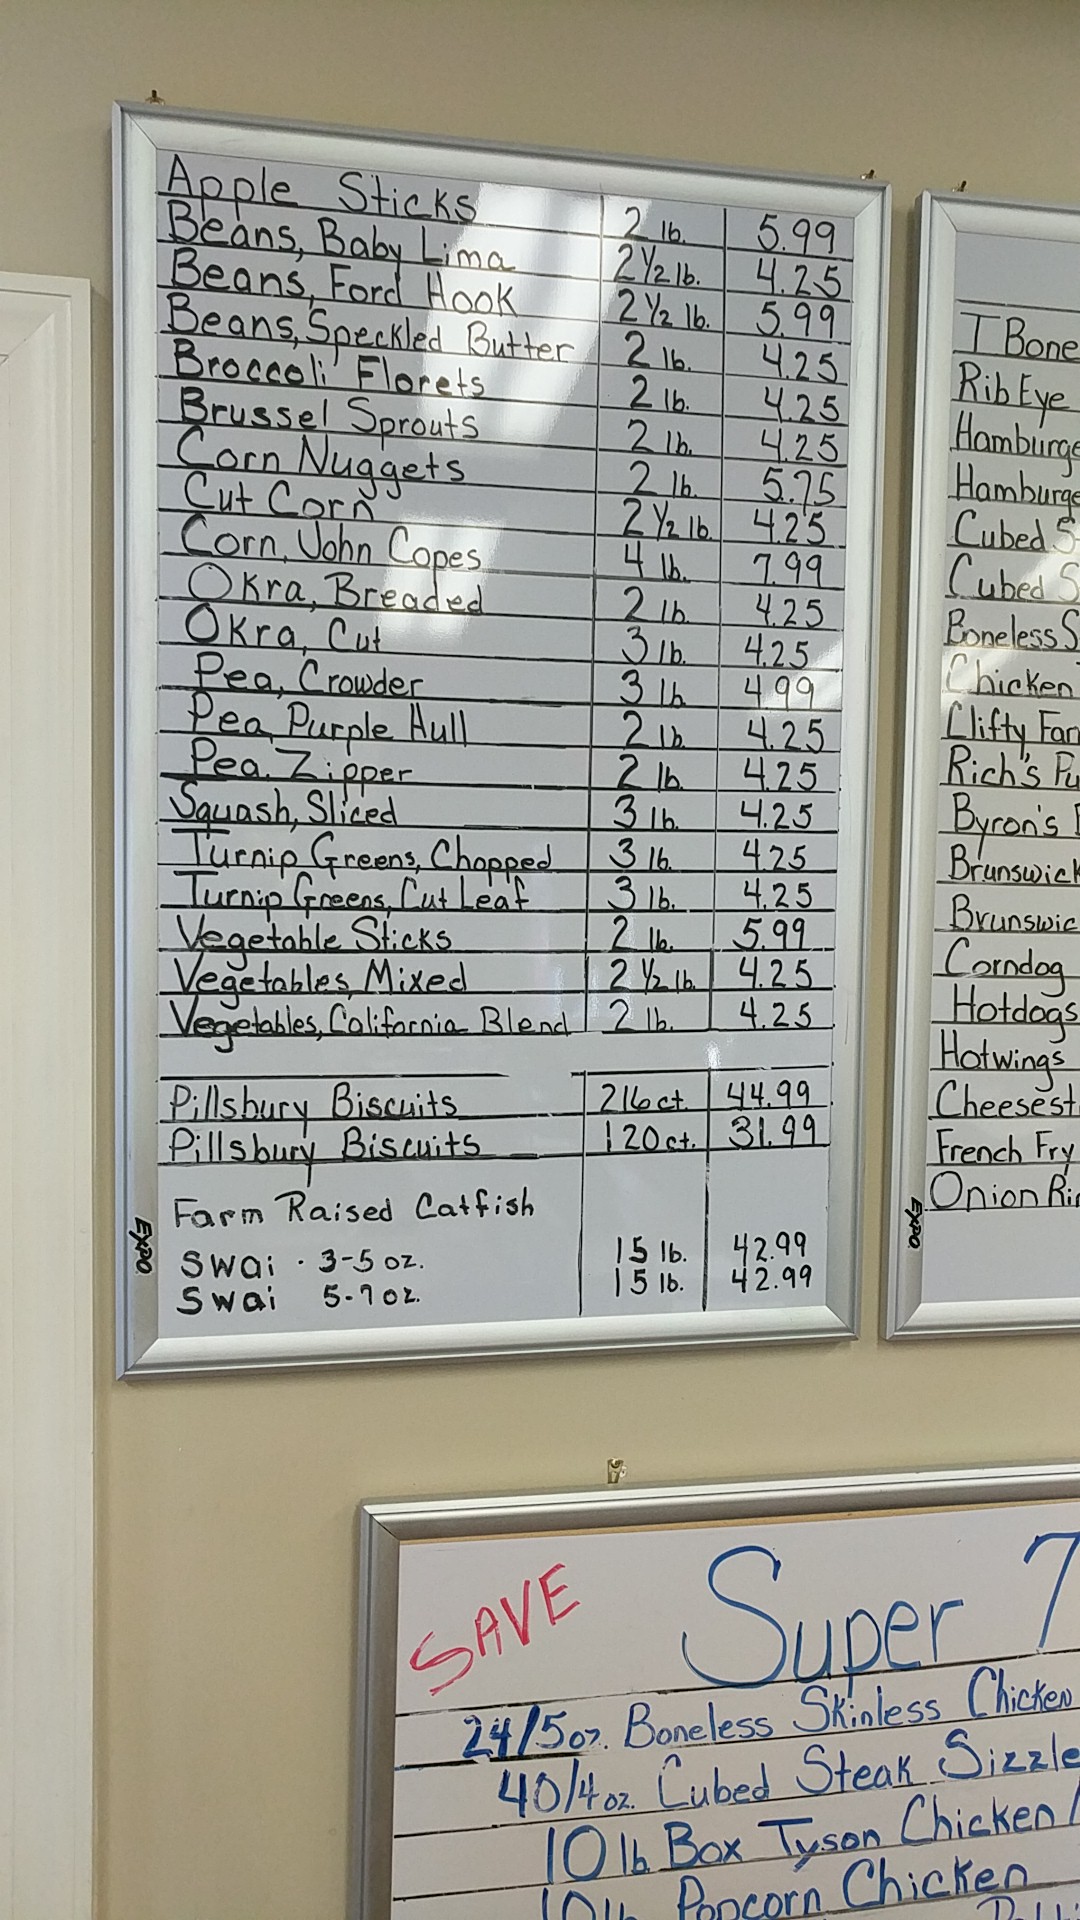 Apple Sticks 2 lb. 5.99
Beans, Baby Lima 2 1/2 lb. 4.25
Beans, Ford Hook 2 1/2 lb. 5.99
Beans, Speckled Butter 2 lb. 4.25
Broccoli Florets 2 lb. 4.25
Brussel Sprouts 2 lb. 4.25
Corn Nuggets 2 lb. 5.75
Cut Corn 2 1/2 lb. 4.25
Corn, John Copes 4 lb. 7.99
Okra, Breaded 2 lb. 4.25
Okra, Cut 3 lb. 4.25
Pea, Crowder 3 lb. 4.99
Pea, Purple Hull 2 lb. 4.25
Pea, Zipper 2 lb. 4.25
Squash, Sliced 3 lb. 4.25
Turnip Greens, Chopped 3 lb. 4.25
Turnip Greens, Cut Leaf 3 lb. 4.25
Vegetable Sticks 2 lb. 5.99
Vegetables, Mixed 2 1/2 lb. 4.25
Vegetables, California Blend 2 lb. 4.25
Pillsbury Biscuits 216 ct. 44.99
Pillsbury Biscuits 120 ct. 31.99
Farm Raised Catfish
Swai - 3-5 oz. 15 lb. 42.99
Swai 5-7 oz. 15 lb. 42.99
EXPO
T Bone
Rib Eye
Hamburge
Hamburge
Cubed S
Cubed S
Boneless S
Chicken
Clifty Far
Rich's Pu
Byron's
Brunswick
Brunswic
Corndog
Hotdogs
Hotwings
Cheesest
French Fry
Onion Ri
EXPO
SAVE
Super 7
24/5oz. Boneless Skinless Chicken
40/4oz. Cubed Steak Sizzle
10 lb Box Tyson Chicken
10 lb Popcorn Chicken